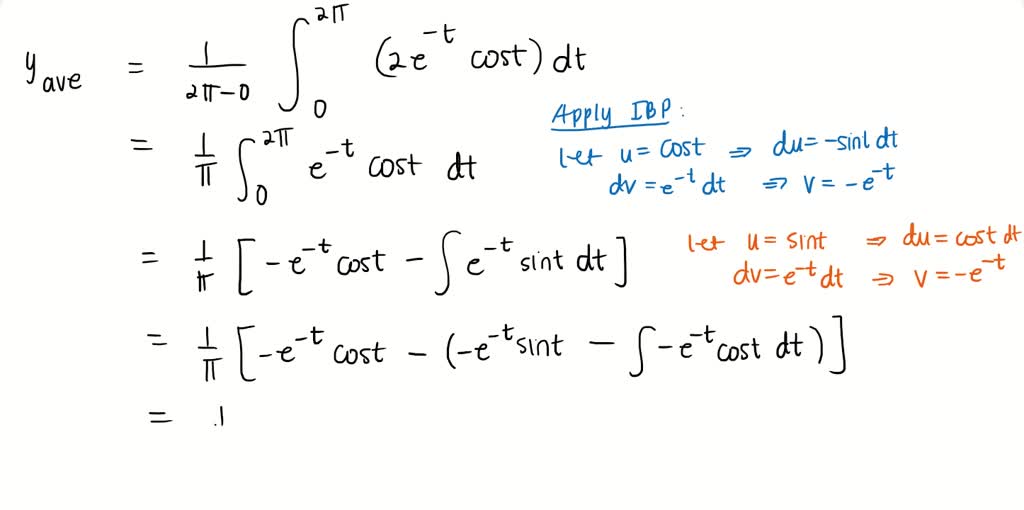 y_ave = 1/(2π-0) ∫_0^{2π} (2e^{-t} cost) dt
Apply IBP:
= 1/π ∫_0^{2π} e^{-t} cost dt
let u = cost ⇒ du = -sint dt
dv = e^{-t} dt ⇒ v = -e^{-t}
= 1/π [-e^{-t} cost - ∫ e^{-t} sint dt]
let u = sint ⇒ du = cost dt
dv = e^{-t} dt ⇒ v = -e^{-t}
= 1/π [-e^{-t} cost - (-e^{-t} sint - ∫ -e^{-t} cost dt)]
=